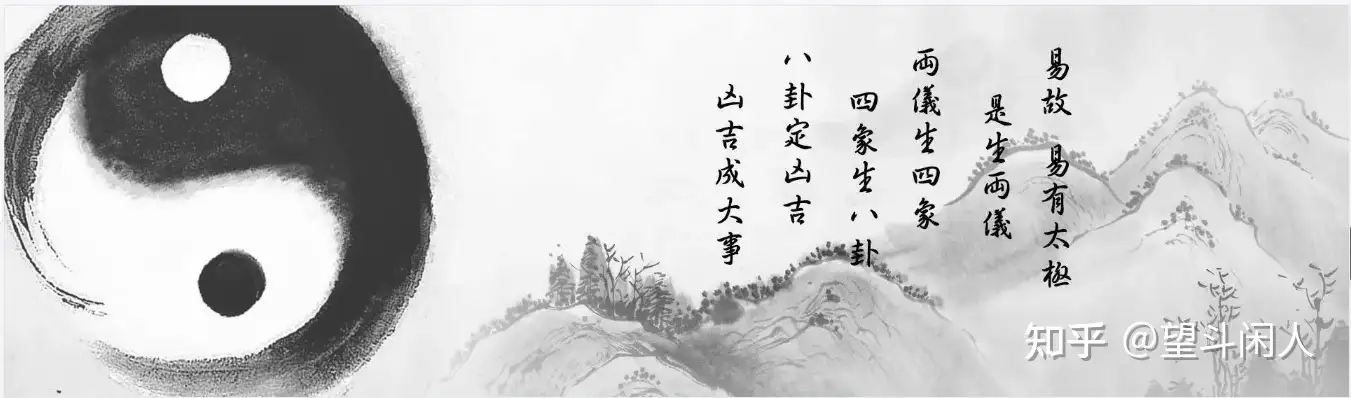 易故 易有太極
是生両儀
両儀生四象
四象生八卦
八卦定凶吉
凶吉成大事
知乎 @望斗闲人